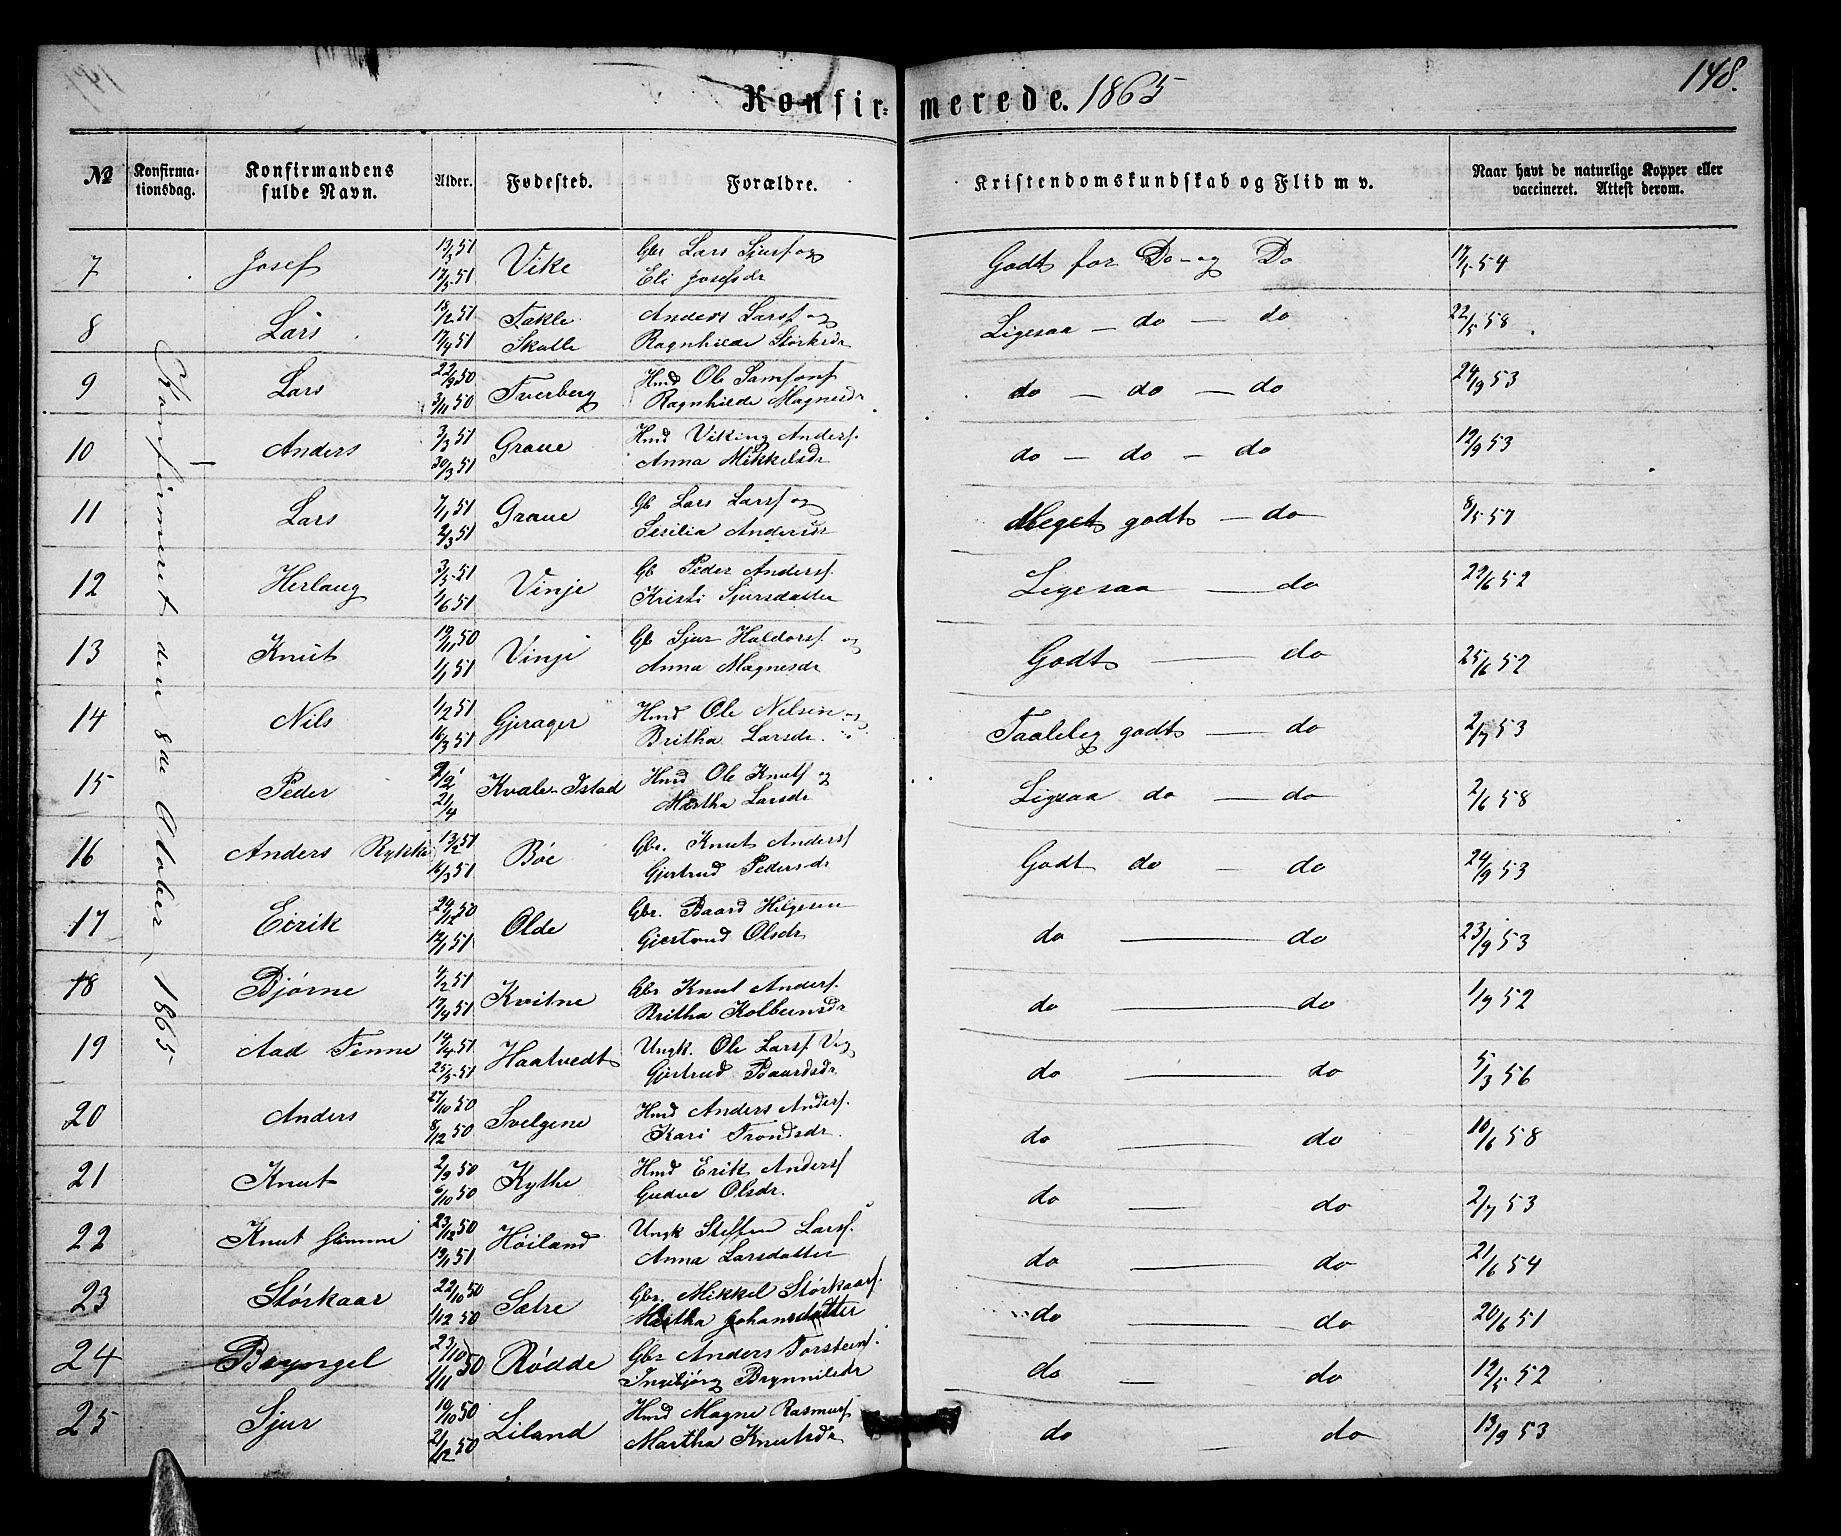 148.
Konfirmerede. 1865
№
Konfirma-
tionsdag.
Konfirmandens
fulde Navn.
Alder.
Fødested.
Forældre.
Kristendomskundskab og Flid m v.
Naar havt de naturlige Kopper eller
vaccineret. Attest derom.
Konfirmeret den 8de Oktober, 1865
7 Josef 13/3 51 Vike Gbr Lars Sjursf og Godt for Do - og Do 17/5 54
17/5 51 Eli Josefsdr
8 Lars 18/2 51 Takle Anders Larsf og Ligesaa - do - do 22/5 58
17/4 51 Skulle Ragnhilde Størksdr
9 Lars 22/9 50 Tverberg Hmd Ole Samsonf do - do - do 24/9 53
3/11 50 Ragnhilde Magnesdr
10 Anders 3/3 51 Graue Hmd Viking Andersf. do - do - do 12/9 53
30/3 51 Anna Mikkelsdr
11 Lars 7/1 51 Graue Gb Lars Larsf og Meget godt - do 8/5 57
2/3 51 Sesilia Andersdr
12 Herlaug 3/5 51 Vinje Gb Peder Andersf. Ligesaa - do 22/6 52
1/6 51 Kristi Sjursdatter
13 Knut 19/11 50 Vinje Gb Sjur Haldorsf. og Godt - do 25/6 52
1/1 51 Anna Magnesdr
14 Nils 1/2 51 Gjerager Hmd Ole Nelsen og Taalelig godt - do 2/7 53
16/3 51 Britha Larsdr.
15 Peder 9/2 Kvale-Istad Hmd Ole Knutsf og Ligesaa do - do 2/6 58
21/4 Martha Larsdr
16 Anders Rykke 13/2 51 Bøe Gbr. Knut Andersf Godt do - do 24/9 53
16/3 51 Gjertrud Pedersdr
17 Eirik 24/12 50 Olde Gbr. Baard Helgesen do - do 23/9 53
12/1 51 Gjertrud Olsdr
18 Bjørne 4/2 51 Kvitne Gbr Knut Andersf. do - do 1/9 52
17/4 51 Britha Kolbeinsdr
19 Aad Finne 14/4 51 Haatvedt Ungk. Ole Larsf. og do - do 5/3 56
25/5 51 Gjertrud Baardsdr
20 Anders 27/10 50 Svelgene Hmd Anders Andersf. do - do 10/6 58
8/12 50 Kari Trondsdr.
21 Knut 2/9 50 Kythe Hmd Erik Andersf do - do 2/7 53
6/10 50 Gudve Olsdr.
22 Knut Gimme 23/12 50 Høiland Ungk Steffen Larsf. do - do 21/6 54
19/1 51 Anna Larsdatter
23 Størkaar 22/10 50 Sætre Gbr. Mikkel Størkaarsf. do - do 20/6 51
1/12 50 Martha Johansdatter
24 Bryngel 23/10 Rødde Gbr Anders Torsteinsf. do - do 12/5 52
1/11 50 Ingebjørg Brynnildsdr
25 Sjur 10/10 50 Liland Hmd Magne Rasmusf do - do 13/9 53
21/12 50 Martha Knutsdr